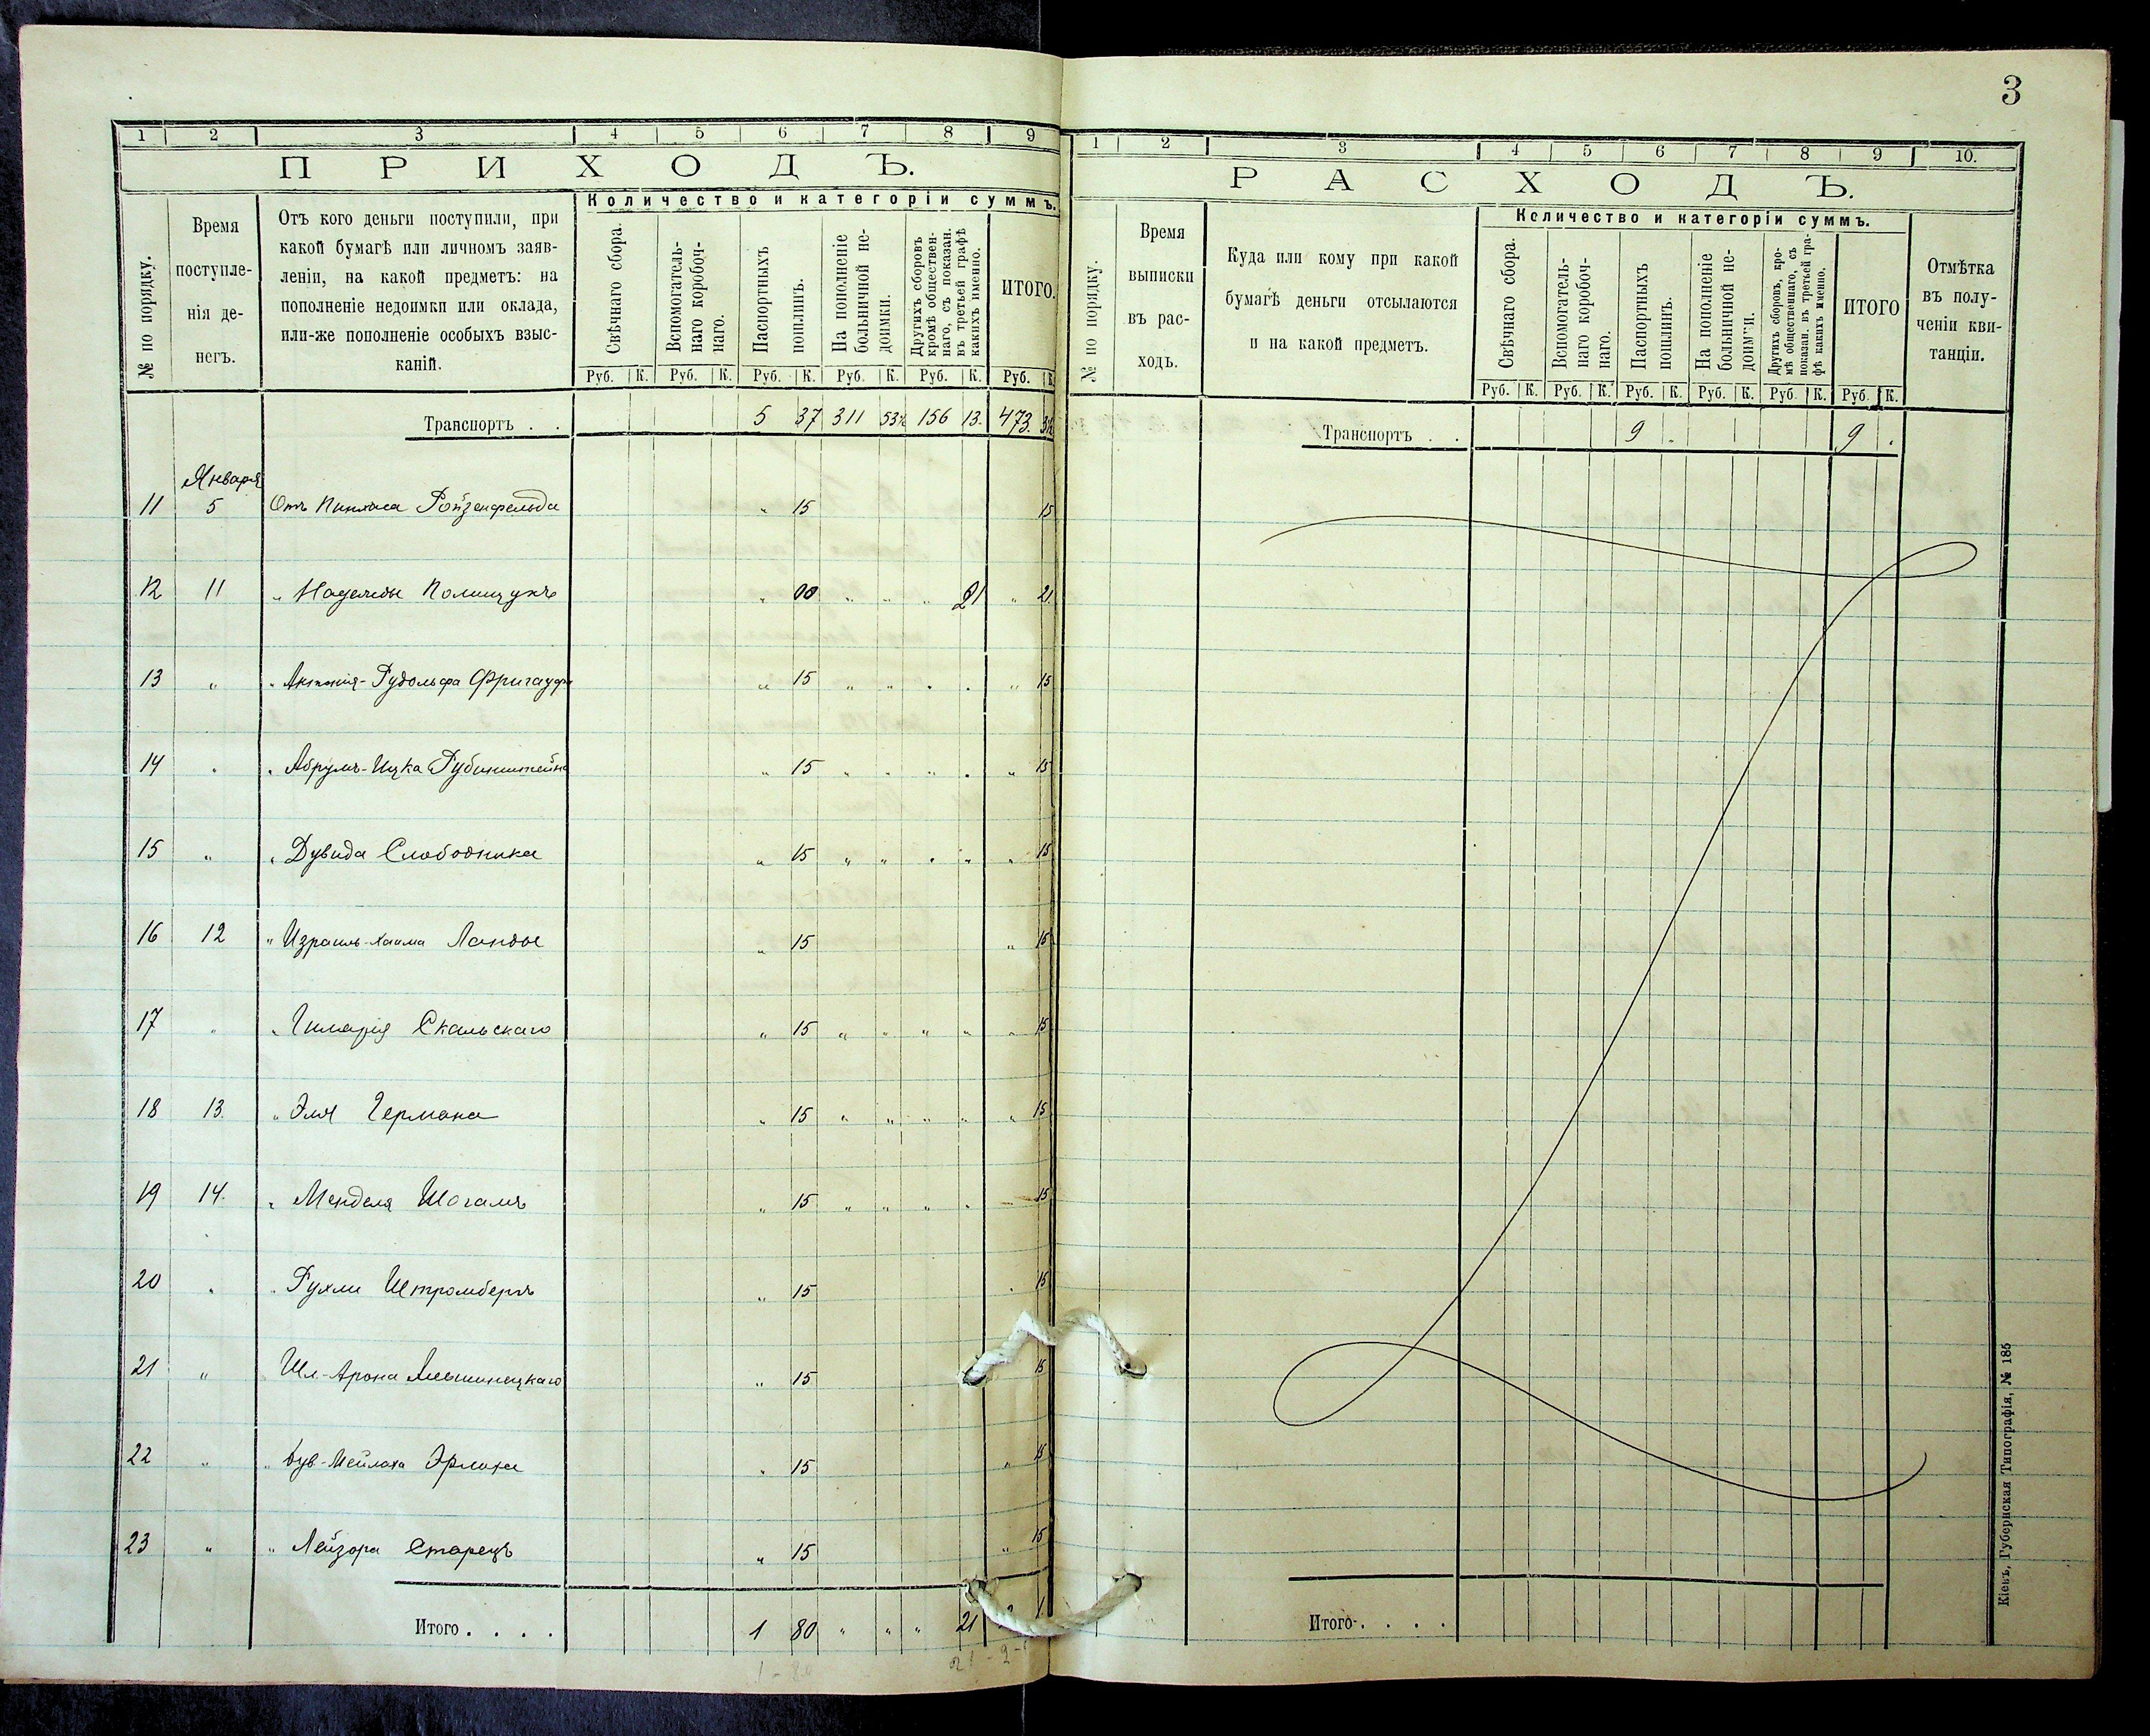 3
1 2 3 4 5 6 7 8 9
ПРИХОДЪ.
№ по порядку.
Время
поступле-
нія де-
негъ.
Отъ кого деньги поступили, при
какой бумагѣ или личномъ заяв-
леніи, на какой предметъ: на
пополненіе недоимки или оклада,
или-же пополненіе особыхъ взыс-
каній.
Количество и категоріи суммъ.
Свѣчнаго сбора.
Вспомогатель-
наго коробоч-
наго.
Паспортныхъ
пошлинъ.
На пополненіе
больничной не-
доимки.
Другихъ сборовъ
кромѣ обществен-
наго, съ показан.
въ третьей графѣ
какихъ именно.
ИТОГО.
Руб. К. Руб. К. Руб. К. Руб. К. Руб. К. Руб. К.
Транспортъ . . 5 37 311 53½ 156 13. 473. 3½
Января
11 5 Отъ Пинхаса Ройзенфельда " 15 15
12 11 " Надежды Полищукъ " 00 " " " 21 " 21.
13 " " Антонія-Рудольфа " 15 " " . . " 15
14 " " Абрумъ-Ицка Рубинштейна " 15 " " " . " 15
15 " " Дувида Слободника " 15 " " " " " 15
16 12 " Израиль-Хаима Ланды " 15 " 15
17 " " Скальскаго " 15 " " " " " 15
18 13. " Эля Германа " 15 " " " " " 15
19 14. " Менделя Шогамъ " 15 " " " . 15
20 " " Рухли Штромбергъ " 15 " 15
21 " Шл.-Арона " 15 15
22 " " Эрлиха " 15 " 15
23 " " Лейзора Старецъ " 15 " 15
Итого . . . . 1 80 " " " 21 2 1
1 - 80 21 - 2 -
1 2 3 4 5 6 7 8 9 10.
РАСХОДЪ.
№ по порядку.
Время
выписки
въ рас-
ходъ.
Куда или кому при какой
бумагѣ деньги отсылаются
и на какой предметъ.
Количество и категоріи суммъ.
Свѣчнаго сбора.
Вспомогатель-
наго коробоч-
наго.
Паспортныхъ
пошлинъ.
На пополненіе
больничной не-
доимки.
Другихъ сборовъ, кро-
мѣ общественнаго, съ
показан. въ третьей гра-
фѣ какихъ именно.
ИТОГО
Отмѣтка
въ полу-
ченіи кви-
танціи.
Руб. К. Руб. К. Руб. К. Руб. К. Руб. К. Руб. К.
Транспортъ . . 9 . 9 .
Итого . . . .
Кіевъ, Губернская Типографія, № 185